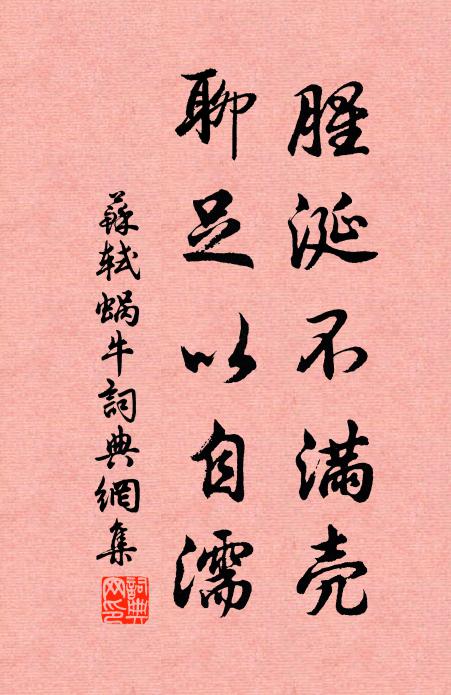 腥涎不满壳
聊足以自濡
蘇軾蝸牛詞典網集
詞典网印